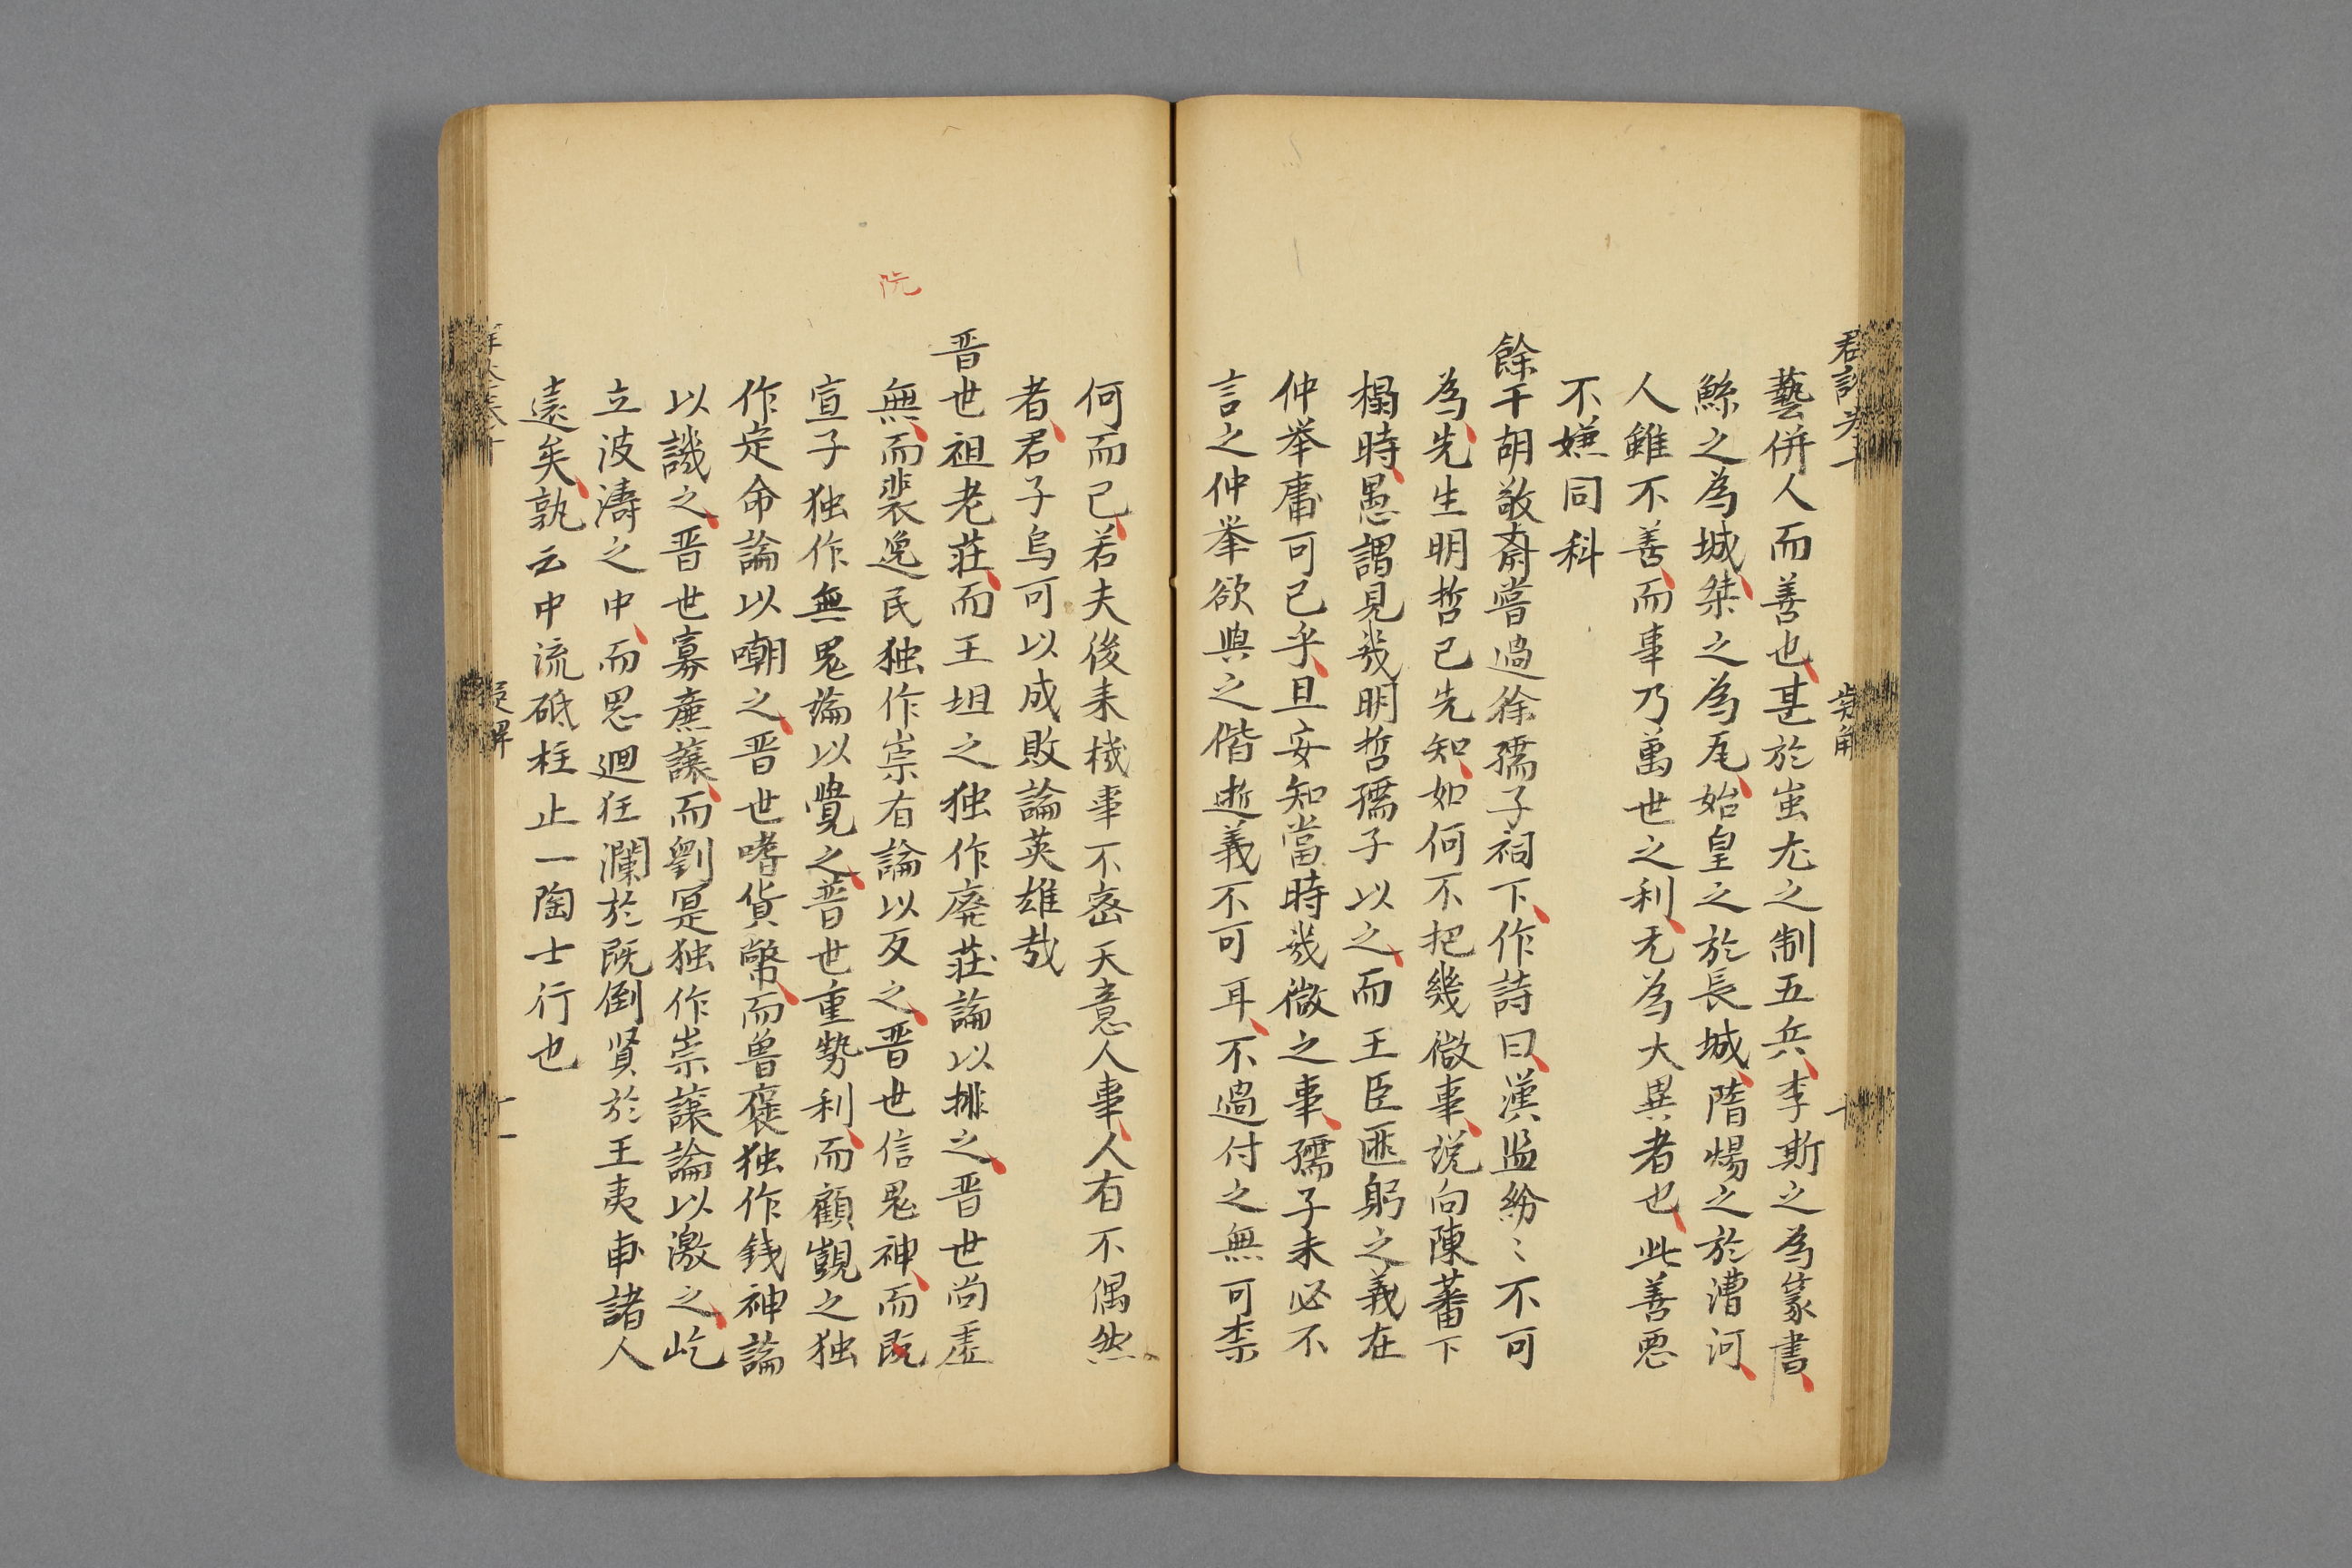 藝併人而善也甚於蚩尤之制五兵李斯之為篆書
鯀之為城桀之為瓦始皇之於長城隋煬之於漕河
人雖不善而事乃萬世之利无為大異者也此善惡
不嫌同科
餘干胡敬齋嘗過徐孺子祠下作詩曰漢監紛〻不可
為先生明哲已先知如何不把幾微事說向陳蕃下
榻時愚謂見幾明哲孺子以之而王臣匪躬之義在
仲举庸可已乎且安知當時幾微之事孺子未必不
言之仲举欲與之偕逝義不可耳不過付之無可柰
何而已若夫後来機事不密天意人事人有不偶然
者君子烏可以成敗論英雄哉
晋世祖老莊而王坦之独作廢莊論以排之晋世尚虛
無而裴逸民独作崇有論以反之晋世信鬼神而既
阮
宣子独作無鬼論以覺之晋世重勢利而顧覬之独
作定命論以嘲之晋世嗜貨幣而魯褒独作錢神論
以譏之晋世寡廉讓而劉寔独作崇讓論以激之屹
立波濤之中而思迴狂瀾於既倒賢於王夷甫諸人
遠矣孰云中流砥柱止一陶士行也
十
十一